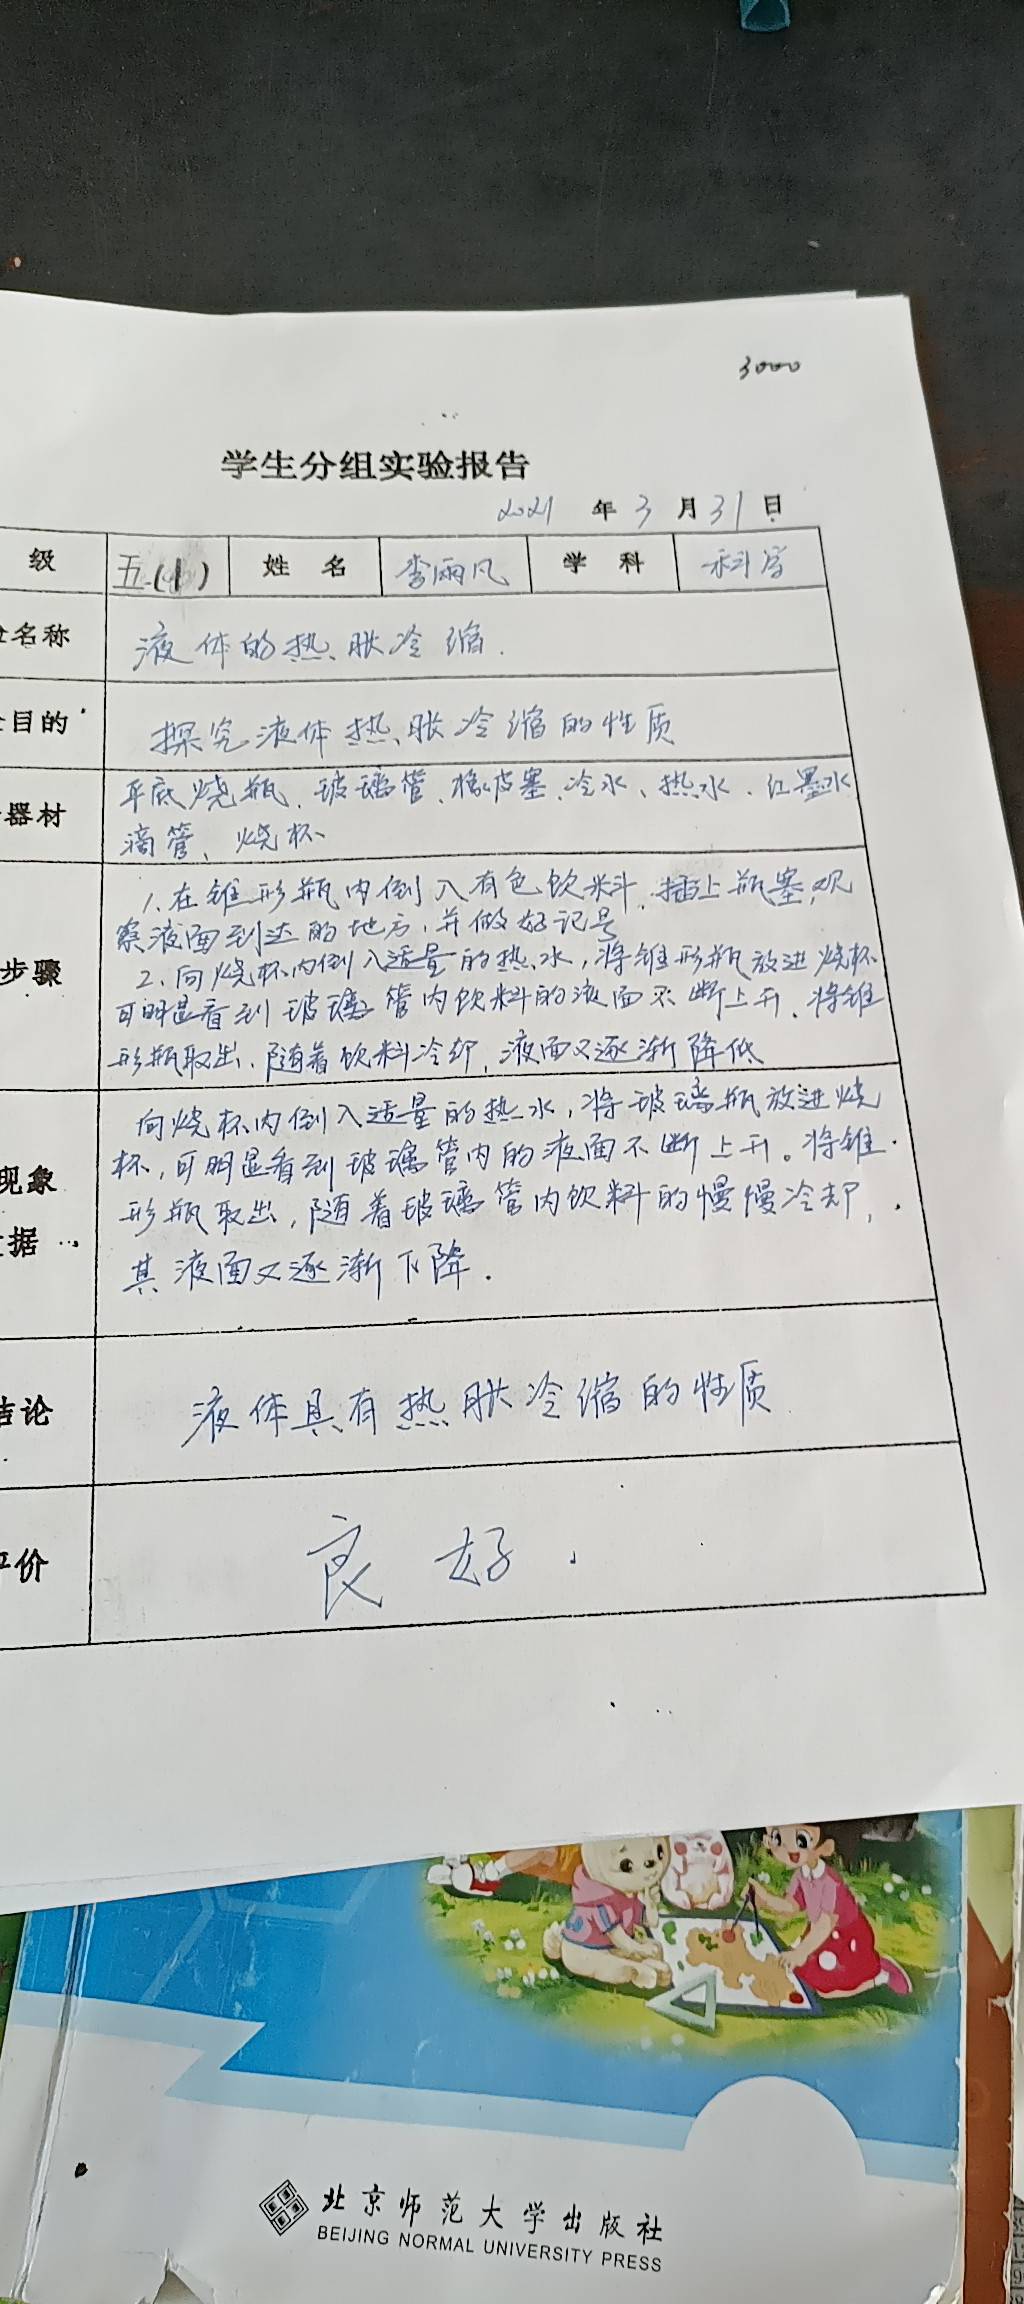 3000
学生分组实验报告
2021 年 3 月 31 日
级 五(1) 姓 名 李雨凡 学 科 科学
名称 液体的热胀冷缩.
目的 探究液体热胀冷缩的性质
器材 平底烧瓶、玻璃管、橡皮塞、冷水、热水、红墨水
滴管、烧杯
步骤 1、在锥形瓶内倒入有色饮料,插上瓶塞,观
察液面到达的地方,并做好记号
2、向烧杯内倒入适量的热水,将锥形瓶放进烧杯
可明显看到玻璃管内饮料的液面不断上升、将锥
形瓶取出,随着饮料冷却,液面又逐渐降低
现象
据
向烧杯内倒入适量的热水,将玻璃瓶放进烧
杯,可明显看到玻璃管内的液面不断上升。将锥
形瓶取出,随着玻璃管内饮料的慢慢冷却,
其液面又逐渐下降.
结论 液体具有热胀冷缩的性质
评价 良好.
北京师范大学出版社
BEIJING NORMAL UNIVERSITY PRESS